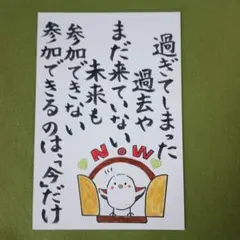 過ぎてしまった
過去や
まだ来ていない
未来も
参加できない
参加できるのは、「今」だけ
NOW